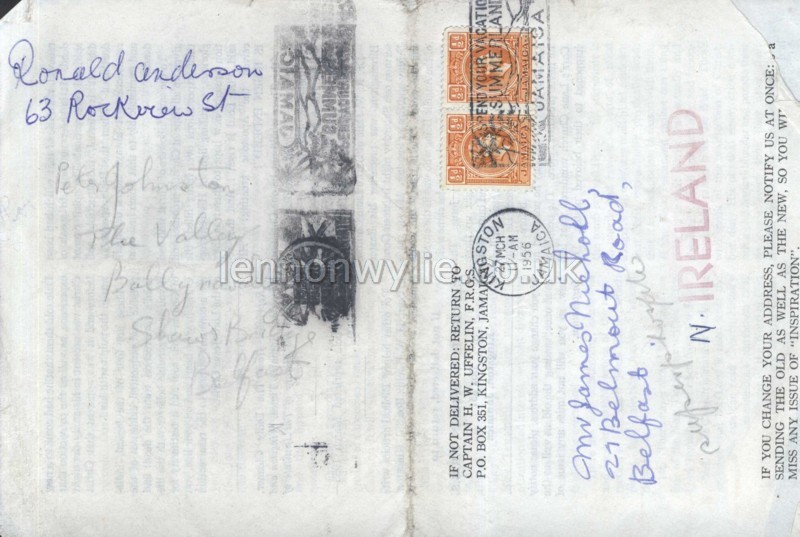 Ronald Anderson
63 Rockview St
Peter Johnston
The Valley
Shaws Bridge
Belfast
lennonwylie.co.uk
SPEND YOUR VACATION
SUMMERLAND
JAMAICA
½d ½d
JAMAICA
½d ½d
JAMAICA
KINGSTON
27 MCH
-AM
1956
JAMAICA
IF NOT DELIVERED: RETURN TO
CAPTAIN H. W. UFFELIN, F.R.G.S.
P.O. BOX 351, KINGSTON, JAMAICA
Mr James Nicholl,
27 Belmount Road,
Belfast
N. IRELAND
IF YOU CHANGE YOUR ADDRESS, PLEASE NOTIFY US AT ONCE:
SENDING THE OLD AS WELL AS THE NEW, SO YOU
MISS ANY ISSUE OF "INSPIRATION".